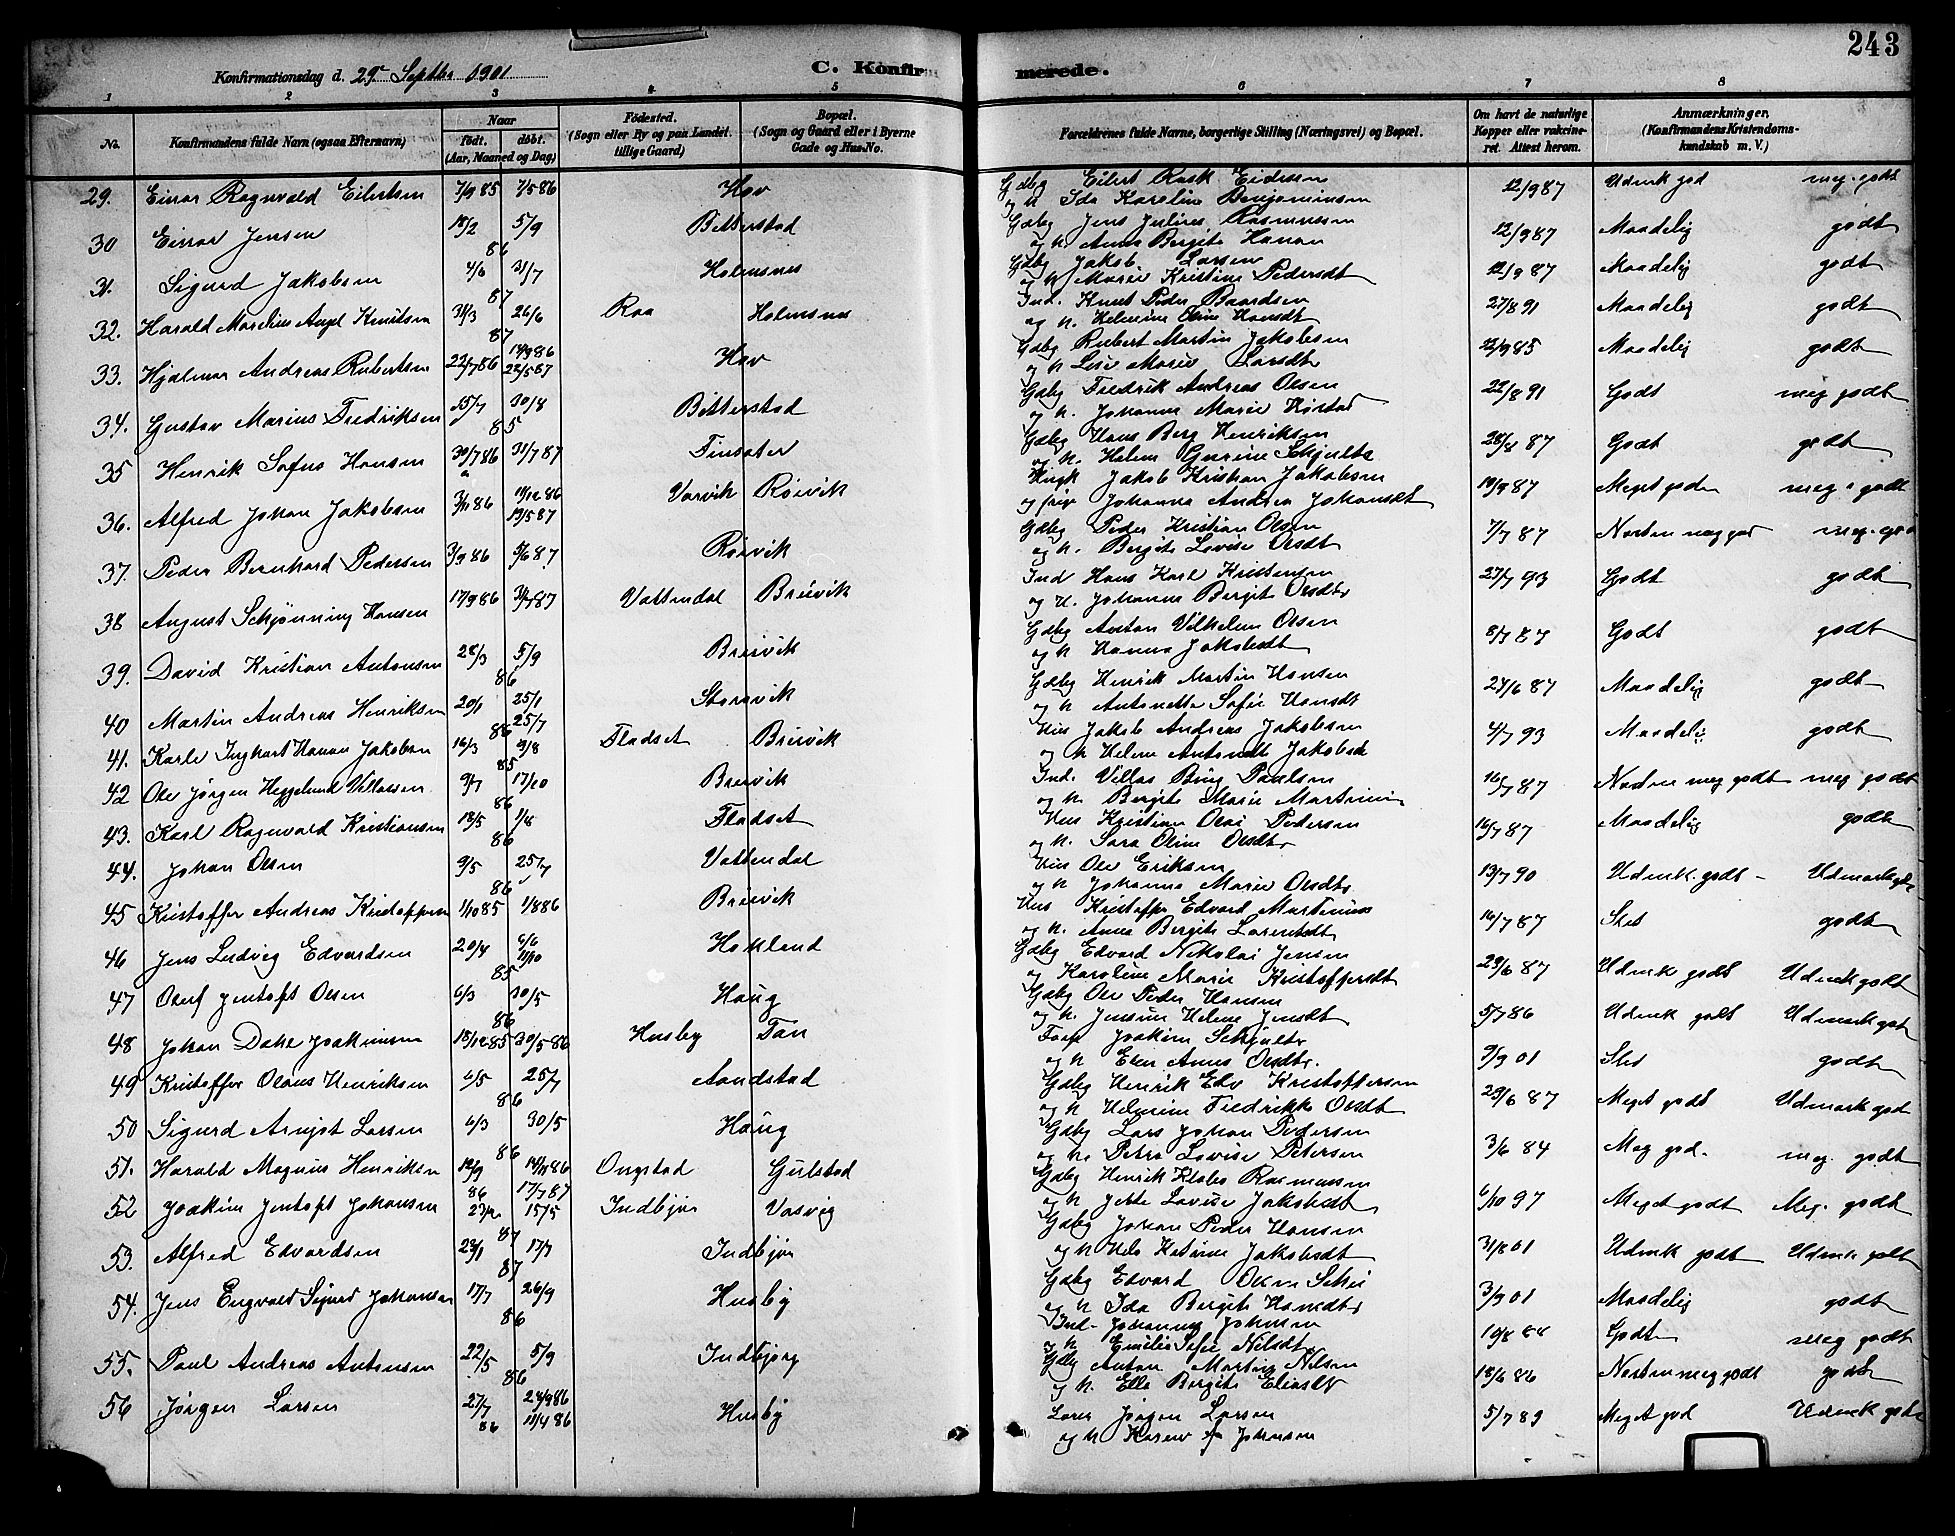 243
Konfirmationsdag d. 29de Septbr 1901 C. Konfirmerede.
1 2 3 4 5 6 7 8
No. Konfirmandens fulde Navn (ogsaa Efternavn) Naar født. døbt. (Aar, Maaned og Dag) Fødested. (Sogn eller By og paa Landet tillige Gaard) Bopæl. (Sogn og Gaard eller i Byerne Gade og Hus-No. Forældrenes fulde Navne, borgerlige Stilling (Næringsvei) og Bopæl. Om havt de naturlige Kopper eller vakcineret. Attest herom. Anmærkninger. (Konfirmandens Kristendomskundskab m. V.)
29. Einar Ragnvald Eilertsen 7/9 85 7/5 86 Hov Gdbg Eilert Rask 12/9 87 Udmk god meg. godt
og h Ida Karoline Benjaminsen
30 Einar Jensen 18/2 5/9 86 Bitterstad Gdbg Jens Julius Rasmussen 12/9 87 Maadelig godt
og h. Anna Bergite Hanan
31. Sigurd Jakobsen 4/6 31/7 87 Holmsnes Gdbg Jakob Larsen 12/9 87 Maadelig godt
og h Marie Kristine Pedersdt
32. Harald Marelius Angel Knutsen 31/3 26/6 87 Raa Holmsnes Ind. Knut Peder Baardsen 27/8 91 Maadelig godt
og h. Helmine Oline Hansdt
33. Hjalmar Andreas Rubertsen 22/7 86 22/5 87 Hov Gdbg Rubert Martin Jakobsen 12/9 85 Maadelig godt
og h Lise Marie Larsdt
34. Gustav Marius Fredriksen 15/7 30/8 85 Bitterstad Gdbg Fredrik Andreas Olsen 22/8 91 Godt meg godt
og h. Johanna Marie
35 Henrik Sofus Hansen 30/7 86 31/7 87 Finsæter Gdbg Hans Berg Henriksen 28/8 87 Godt godt
og h. Helene Gurine Schjults
36. Alfred Johan Jakobsen 3/11 86 19/12 86 19/5 87 Varvik Röivik Ungk Jakob Kristian Jakobsen 19/9 87 Meget goden meg. godt
og Johanna Andrea Johansdt
37. Peder Bernhard Pedersen 3/9 86 5/6 87 Röivik Gdbg Peder Kristian Olsen 7/7 87 Næsten meg god meg. godt
og h. Bergite Lovise Olsdt
38 August Schjønning Hansen 17/9 86 31/7 87 Vattendal Breivik Ind Hans Karl Kristensen 27/7 93 Godt godt
og h. Johanna Bergite Olsdtr
39. David Kristian Antonsen 28/3 5/9 86 Breivik Gdbg Anton Vilhelm Olsen 8/7 87 Godt godt
og h Hanna Jakobsdt
40 Martin Andreas Henriksen 20/1 25/1 25/7 86 Storavik Gdbg Henrik Martin Hansen 24/6 87 Maadelig godt
og h Antonette Sofie Hansdt
41. Karle Inghart Hanan Jakobsen 16/3 9/8 85 Fladset Breivik Hus Jakob Andreas Jakobsen 4/7 93 Maadelig godt
og h Helene Antondt Jakobsen
42 Ole Jørgen Heggelund Villassen 9/7 17/10 86 Breivik Ind. Villas Paulsen 16/7 87 Næsten meg godt meg godt
og h. Bergite Marie
43. Karl Ragnvald Kristiansen 18/5 1/8 86 Fladset Hus Kristian Olai Pedersen 16/7 87 Maadelig godt
og h. Sara Oline Olsdtr
44. Johan Olsen 9/5 25/7 86 Vattendal Hus Ole Eriksen 13/7 90 Udmk. godt - Udmærk
og h Johanna Marie Olsdtr
45 Kristoffer Andreas Kristoffersen 1/10 85 1/8 86 Breivik Hus Kristoffer Edvard Martinus 16/7 87 Slet godt
og h. Anna Bergite Larentsdt
46 Jens Ludvig Edvardsen 20/4 6/6 11/10 85 Hokland Gdbg Edvard Nikolai Jensen 29/6 87 Udmk godt Udmk godt
og Karoline Marie Kristoffersdt
47 Oluf Jentoft Olsen 6/3 30/5 86 Haug Gdbg Ole Peder Hansen 5/7 86 Udmk godt Udmærk godt
og h. Jensine Helene Jensdt
48 Johan Dahl Joakimsen 18/12 85 30/5 86 Husby Tan Joakim Schjults 9/9 01 Slet godt
og h Elen Anna Olsdtr.
49 Kristoffer Olaus Henriksen 6/5 25/7 86 Aandstad Gdbg Henrik Edv Kristoffersen 29/6 87 Meget godt Udmærk god
og h Helmine Fredrikke Olsdt
50 Sigurd Arnljot Larsen 6/3 30/5 86 Haug Gdbg Lars Johan Pedersen 3/6 84 Meg god. meg. godt
og h. Petra Lovise Petersen
51. Harald Magnus Henriksen 12/9 86 14/11 86 17/7 87 Ongstad Gulstad Gdbg Henrik Klabo Rasmussen 6/10 97 Meget godt Meg. godt
og h Jette Lovise Jakobsdt
52 Joakim Jentoft Johansen 15/5 87 Indbjor Vasvig Gdbg Johan Peder Hansen 31/8 01 Udmk godt Udmk godt
og h Katrine Jakobsdt
53. Alfred Edvardsen 28/1 17/7 87 Indbjor Gdbg Edvard Olsen 3/9 01 Maadelig godt
og h Ida Bergite Hansdtr
54. Jens Engvald Sigurd Johansen 17/7 26/9 86 Husby Ind. Johannes Johnsen 19/8 88 Godt meg godt
og h Emilie Sofie Nilsdt
55. Paul Andreas Antonsen 22/5 5/9 86 Indbjorg Gdbg Anton Martin Nilsen 18/6 86 Næsten meg godt godt
og h. Ella Bergite Eliasdt
56 Jørgen Larsen 27/7 86 24/9 86 11/4 86 Husby Lars Jörgen Larsen 5/7 89 Meget god Udmk godt
og h Karen Johansen